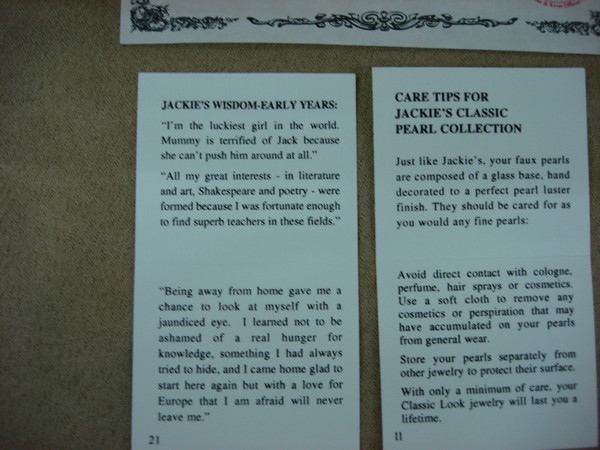 JACKIE'S WISDOM-EARLY YEARS:
“I'm the luckiest girl in the world.
Mummy is terrified of Jack because
she can't push him around at all.”
“All my great interests - in literature
and art, Shakespeare and poetry - were
formed because I was fortunate enough
to find superb teachers in these fields.”
“Being away from home gave me a
chance to look at myself with a
jaundiced eye. I learned not to be
ashamed of a real hunger for
knowledge, something I had always
tried to hide, and I came home glad to
start here again but with a love for
Europe that I am afraid will never
leave me.”
21
CARE TIPS FOR
JACKIE'S CLASSIC
PEARL COLLECTION
Just like Jackie's, your faux pearls
are composed of a glass base, hand
decorated to a perfect pearl luster
finish. They should be cared for as
you would any fine pearls:
Avoid direct contact with cologne,
perfume, hair sprays or cosmetics.
Use a soft cloth to remove any
cosmetics or perspiration that may
have accumulated on your pearls
from general wear.
Store your pearls separately from
other jewelry to protect their surface.
With only a minimum of care, your
Classic Look jewelry will last you a
lifetime.
11